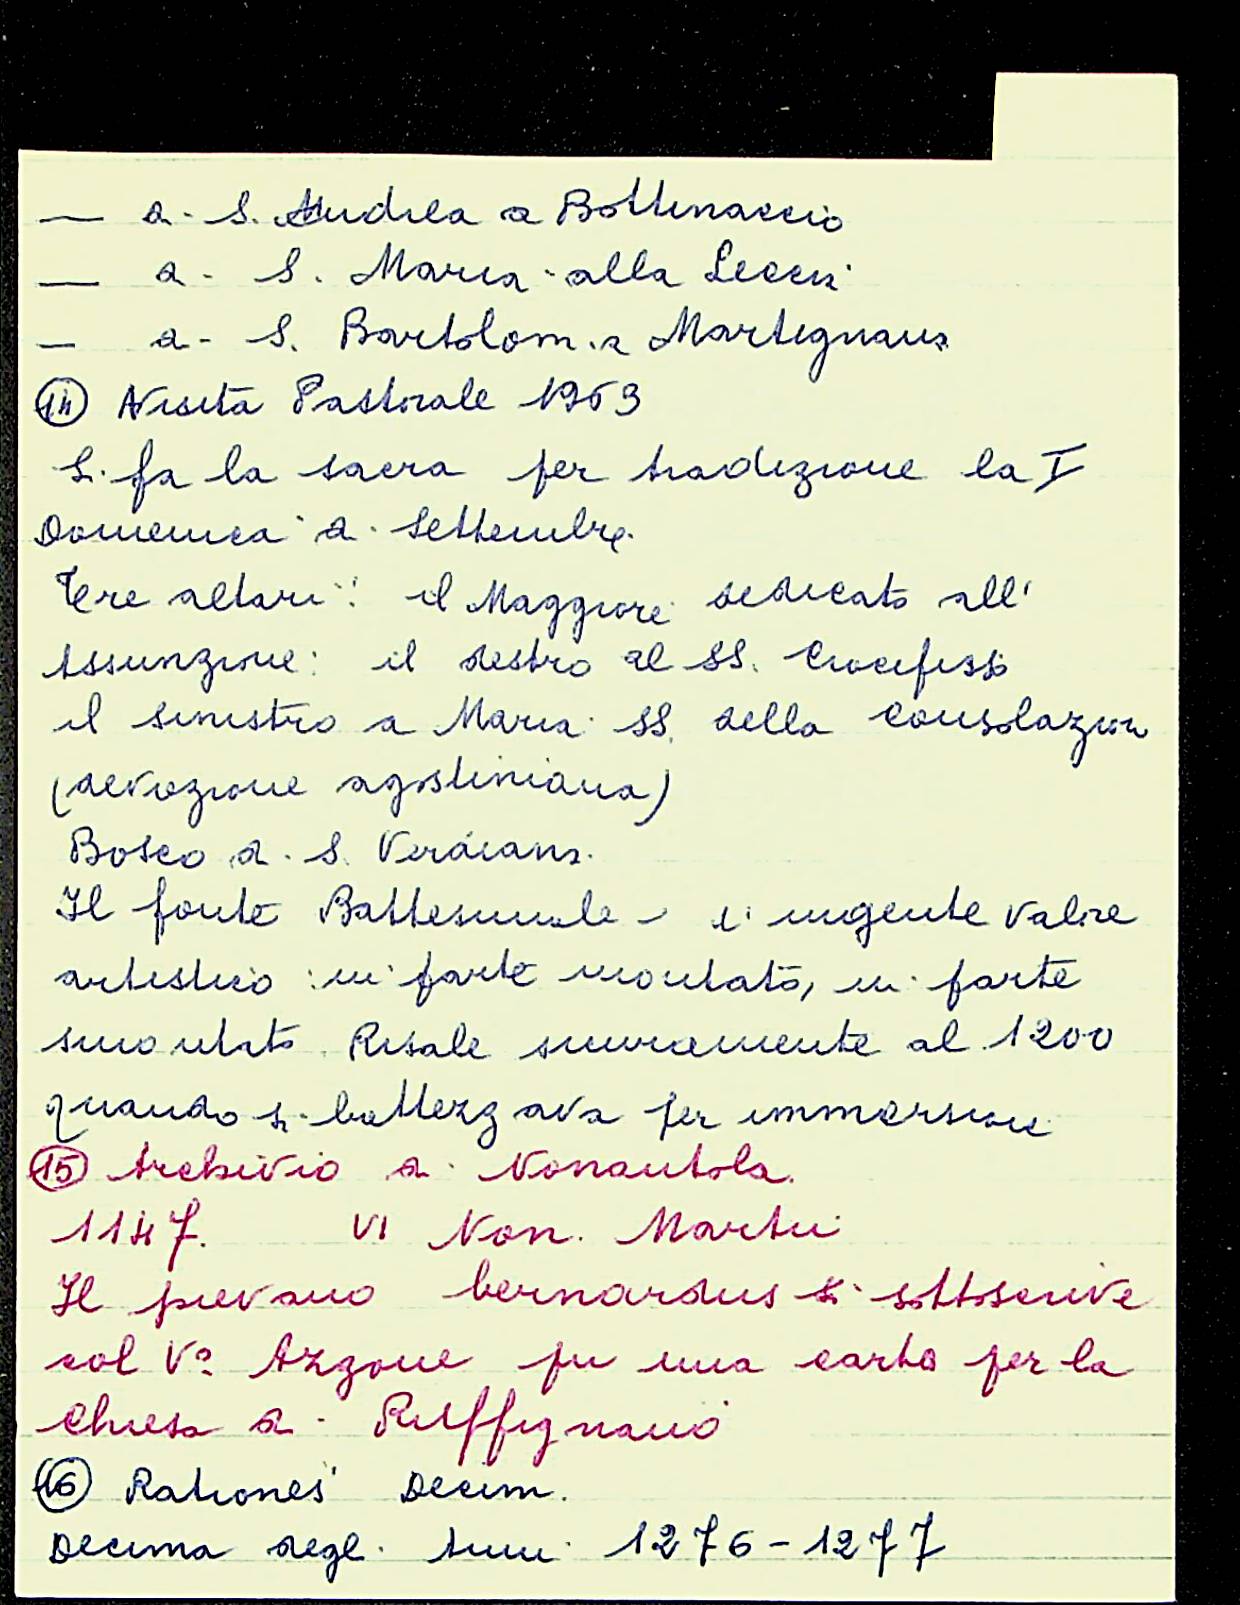 — di S. Andrea a Bottinaccio
— di S. Maria alla Lecci
— di S. Bartolom. a Martignana
(14) Visita Pastorale 1963
Si fa la sacra per tradizione la I
Domenica di Settembre.
Tre altari: il Maggiore dedicato all'
Assunzione: il destro al SS. Crocifisso
il sinistro a Maria SS. della Consolazion
(devozione agostiniana)
Bosco di S. Verdiana.
Il fonte Battesimale – d'ingente valore
artistico: in parte montato, in parte
smontato. Risale sicuramente al 1200
quando si battezzava per immersione
(15) Archivio di Nonantola.
1147. VI Non. Martii
Il pievano bernardus si sottoscrive
col Vo Azzone in una carta per la
chiesa di Ruffignano
(16) Rationes Decim.
Decima degli Anni 1276-1277